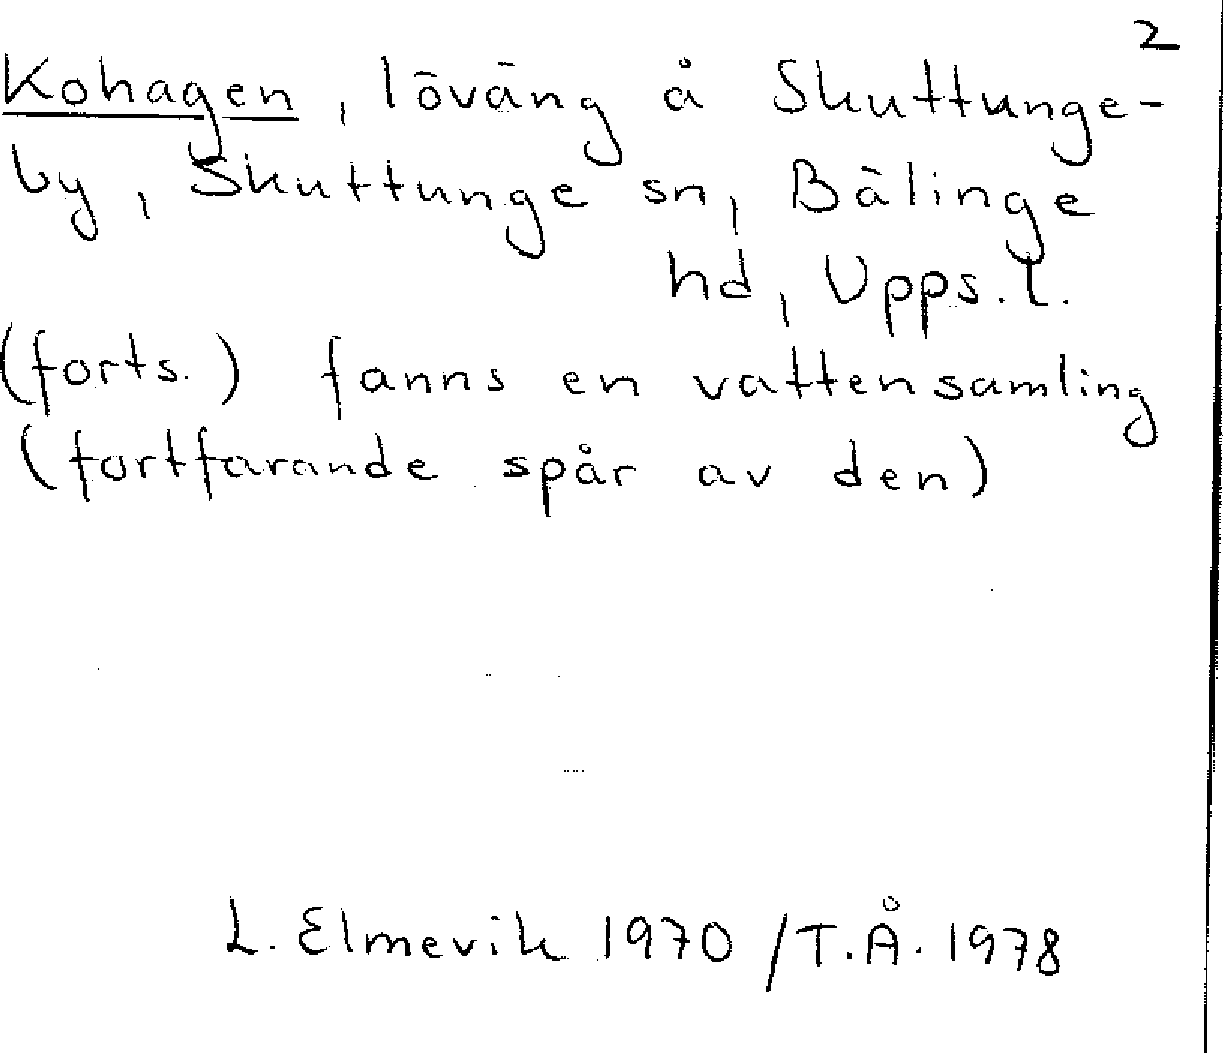 2
Kohagen, löväng å Skuttunge-
by, Skuttunge sn, Bälinge
hd, Upps. l.
(forts.) fanns en vattensamling
(fortfarande spår av den)
L. Elmevik 1970 /T.Å. 1978